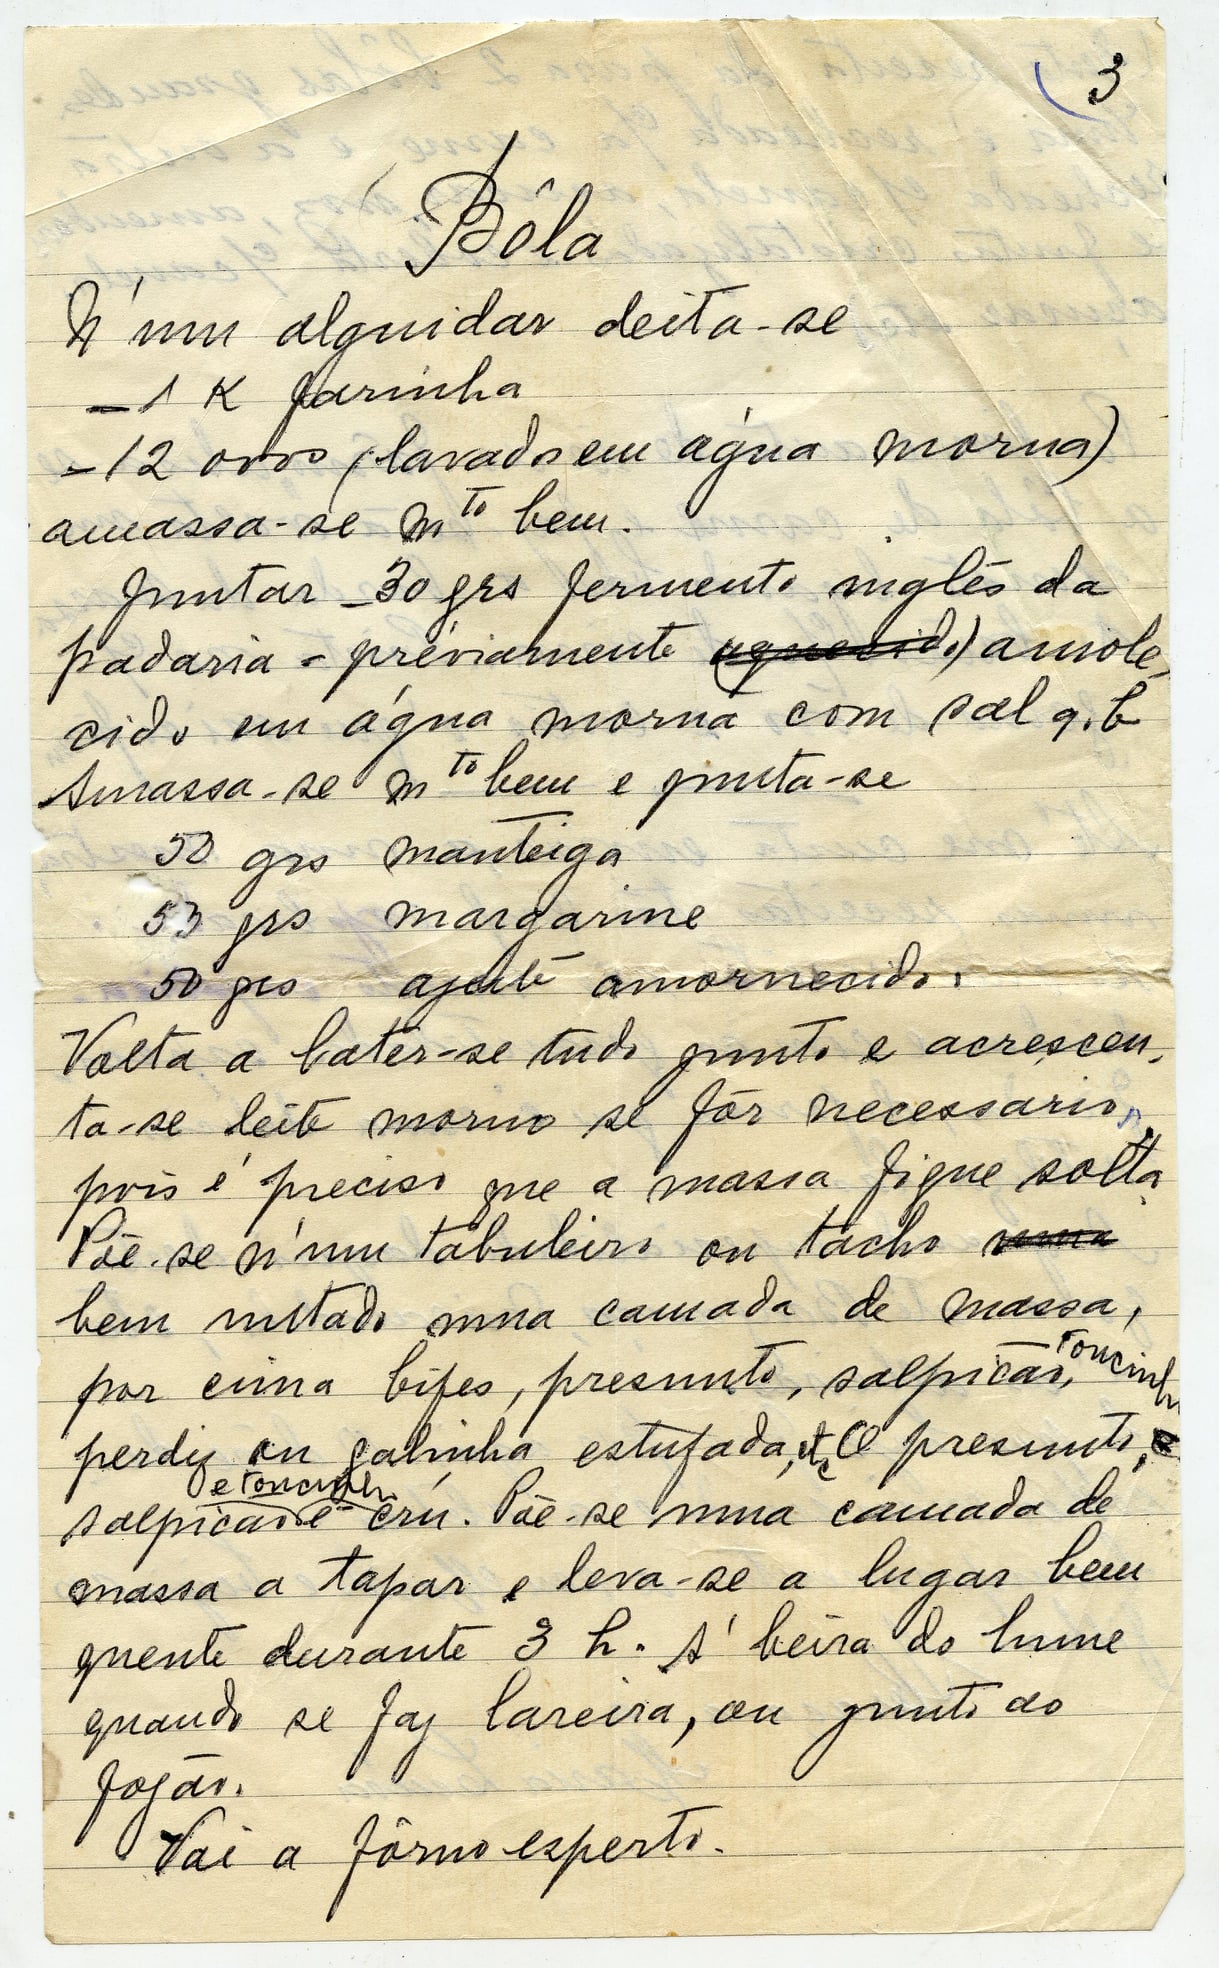 3
Bôla
N'um alguidar deita-se
- 1 K farinha
- 12 ovos (lavados em água morna)
amassa-se mto bem.
Juntar - 30 grs fermento inglês da
padaria - préviamente (aquecido) amole-
cido em água morna com sal q.b
Amassa-se mto bem e junta-se
50 grs manteiga
50 grs margarine
50 grs azeite amornecido.
Volta a bater-se tudo junto e acrescen-
ta-se leite morno se fôr necessario,
pois é preciso que a massa fique solta
Põe-se n'um tabuleiro ou tacho uma
bem untado uma camada de massa,
por cima bifes, presunto, salpicão, toucinho
perdiz ou galinha estufada, etc. O presunto,
salpicão e toucinho é crú. Põe-se uma camada de
massa a tapar e leva-se a lugar bem
quente durante 3 h. Á beira do lume
quando se faz lareira, ou junto ao
fogão.
Vai a fôrno esperto.